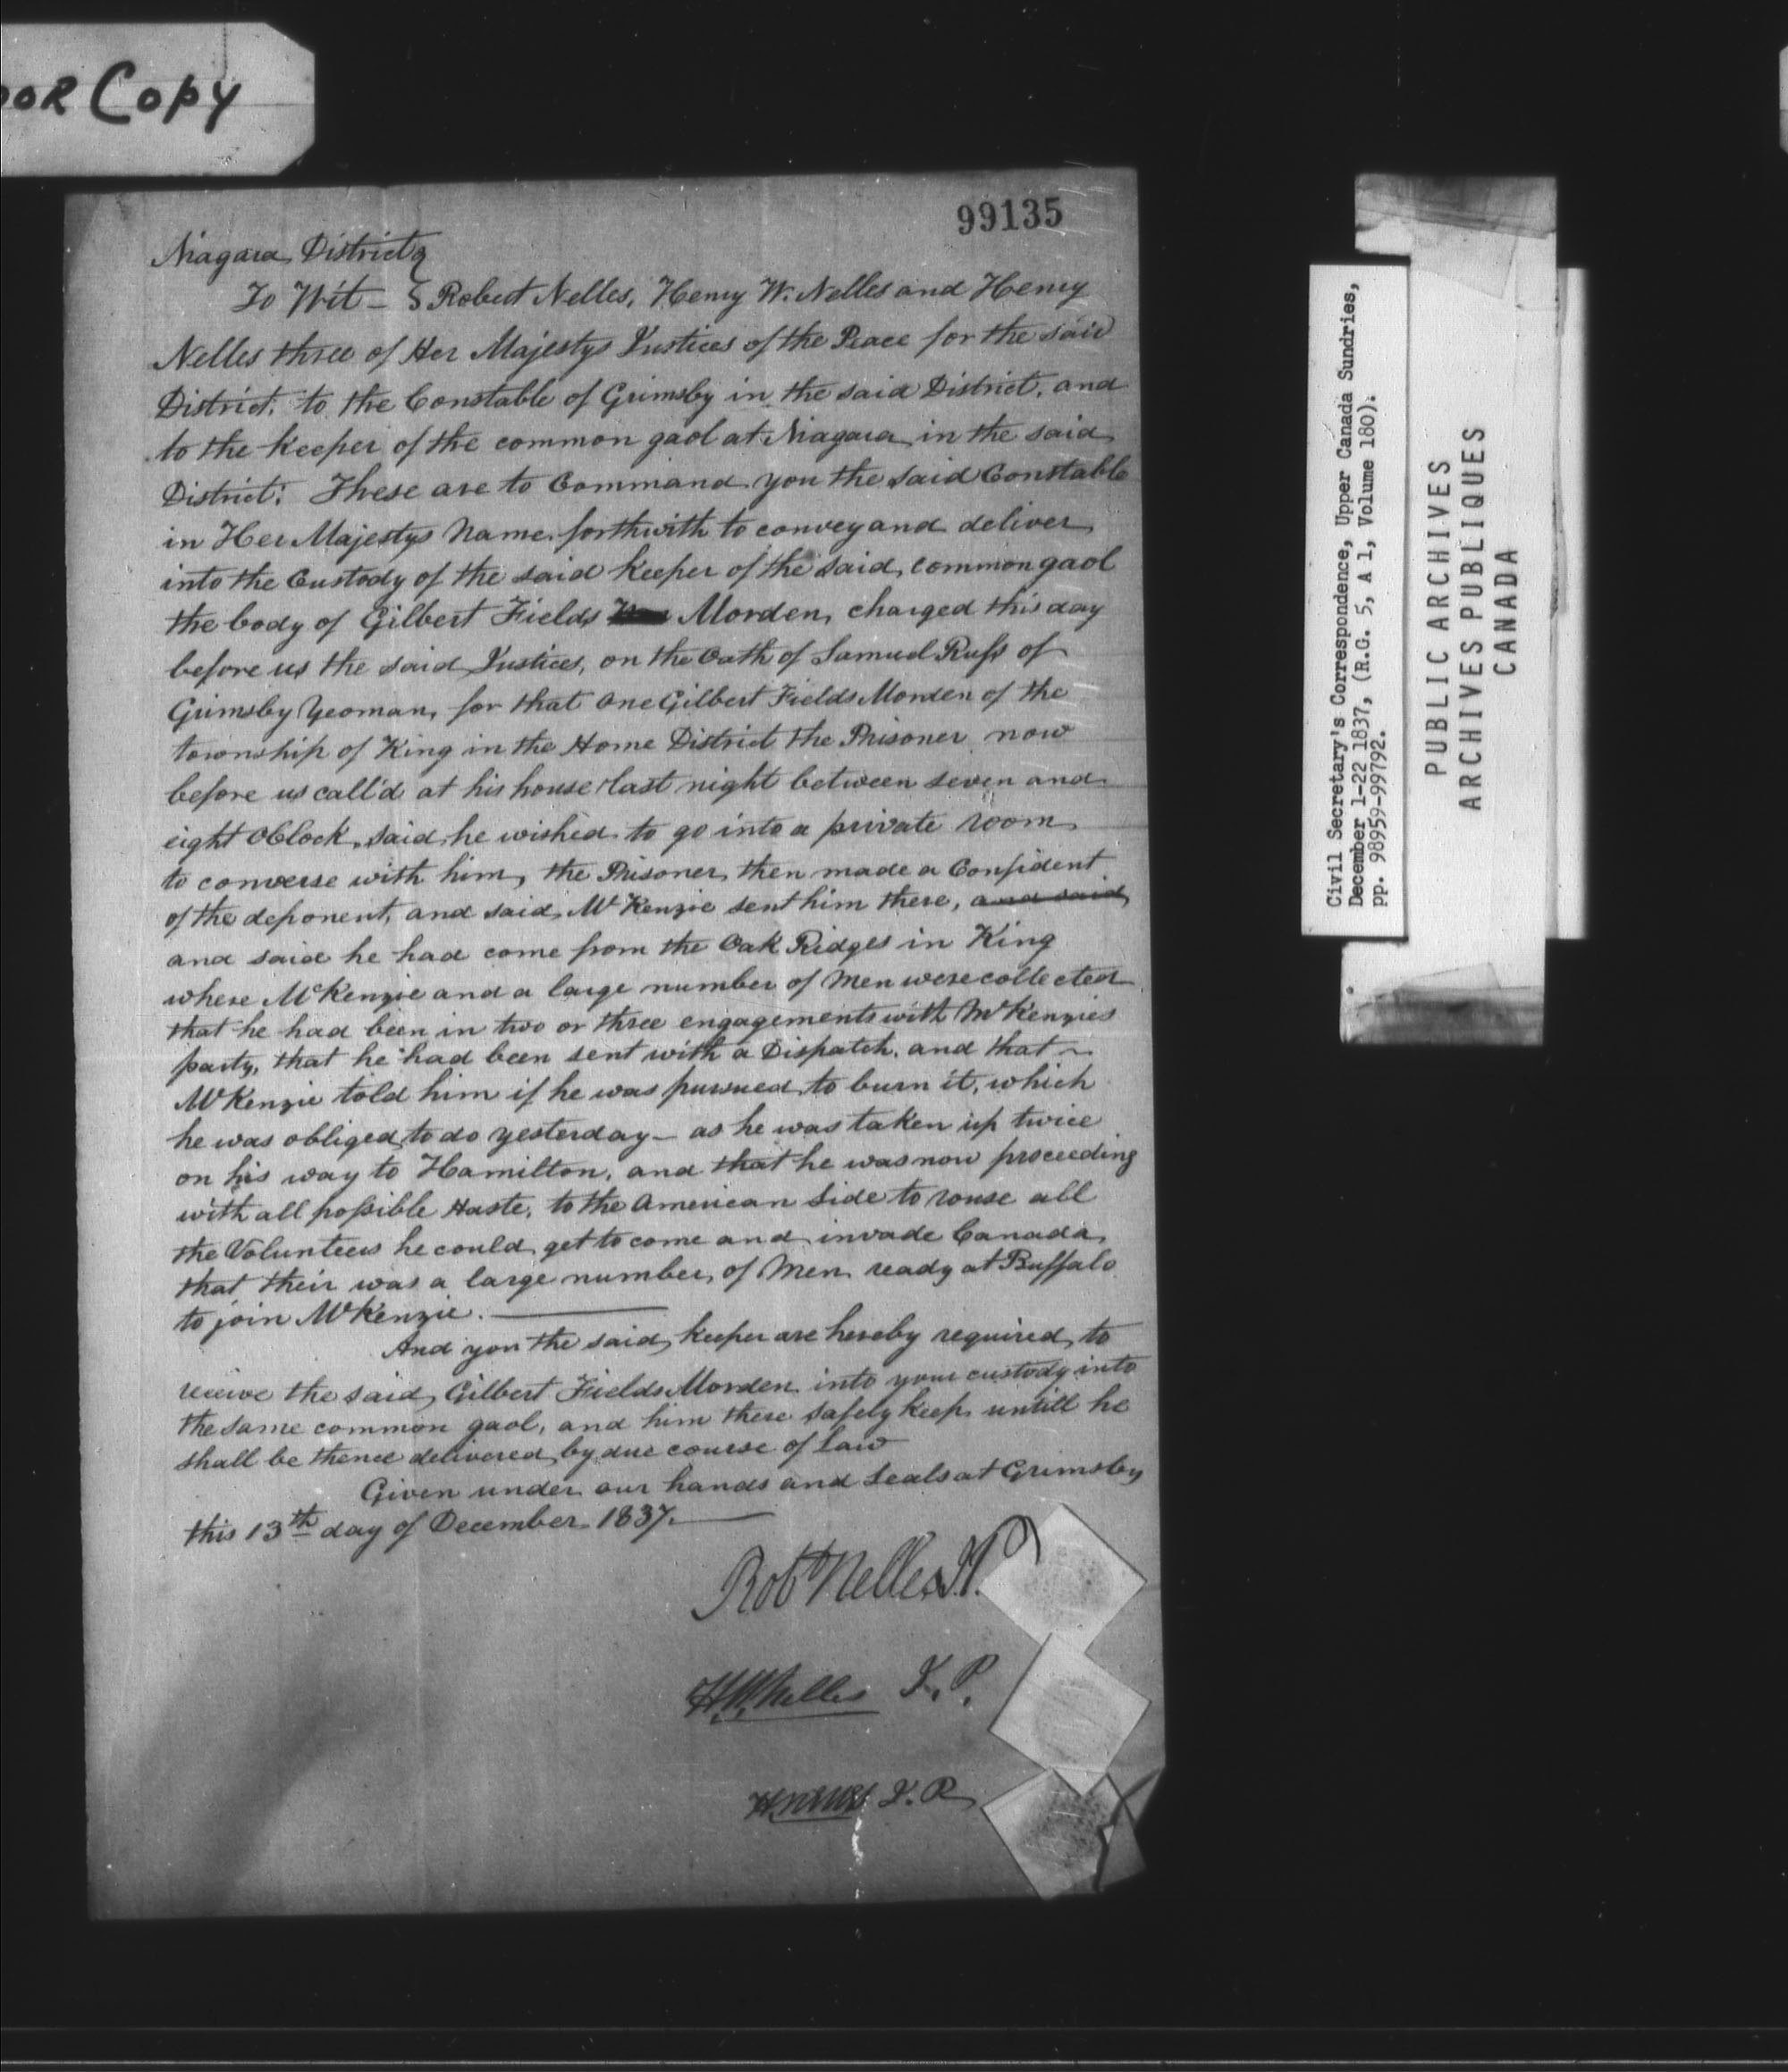 OOR Copy
99135
Niagara District
To Wit – Robert Nelles, Henry W. Nelles and Henry
Nelles three of Her Majestys Justices of the Peace for the said
District, to the Constable of Grimsby in the said District, and
to the Keeper of the common gaol at Niagara in the said
District: These are to Command you the said Constable
in Her Majestys Name forthwith to convey and deliver
into the Custody of the said Keeper of the said common gaol
the body of Gilbert Fields Morden, charged this day
before us the said Justices, on the Oath of Samuel Russ of
Grimsby Yeoman, for that one Gilbert Fields Morden of the
township of King in the Home District the Prisoner now
before us call'd at his house last night between seven and
eight OClock, said he wished to go into a private room
to converse with him, the Prisoner then made a Confident
of the deponent, and said McKenzie sent him there, and said
and said he had come from the Oak Ridges in King
where McKenzie and a large number of Men were collected
that he had been in two or three engagements with McKenzies
party, that he had been sent with a Dispatch, and that ~
McKenzie told him if he was pursued to burn it, which
he was obliged to do yesterday – as he was taken up twice
on his way to Hamilton, and that he was now proceeding
with all possible Haste, to the American Side to rouse all
the Volunteers he could get to come and invade Canada,
that their was a large number of Men ready at Buffalo
to join McKenzie. ——
And you the said keeper are hereby required to
receive the said Gilbert Fields Morden into your custody into
the same common gaol, and him there safely keep untill he
shall be thence delivered by due course of Law
Given under our hands and Seals at Grimsby
this 13th day of December 1837. ——
Robt Nelles J.P.
H.W. Nelles J.P.
H. Nelles J.P.
Civil Secretary's Correspondence, Upper Canada Sundries,
December 1-22 1837, (R.G. 5, A 1, Volume 180).
pp. 98959-99792.
PUBLIC ARCHIVES
ARCHIVES PUBLIQUES
CANADA